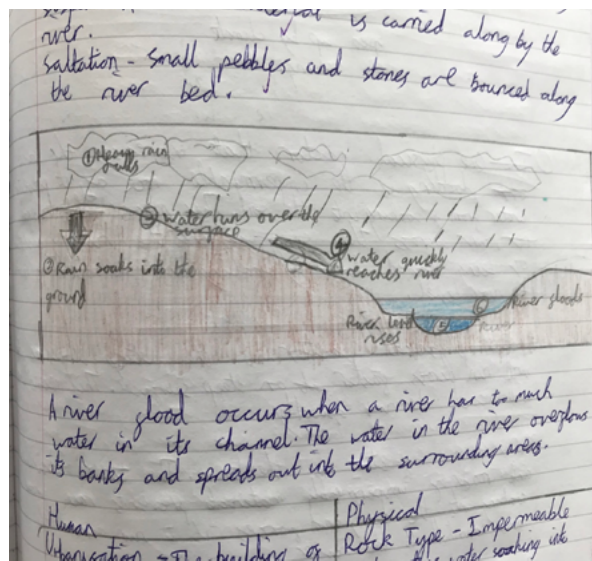 is carried along by the
river.
Saltation - Small pebbles and stones are bounced along
the river bed.
① Heavy rain
falls
③ Water runs over the
surface
② Rain soaks into the
ground
④
Water quickly
reaches river
⑥ River floods
River level
rises
⑤ River
A river flood occurs when a river has to much
water in its channel. The water in the river overflows
its banks and spreads out into the surrounding areas.
Human
Urbanisation - The building of
Physical
Rock Type - Impermeable
water soaking into